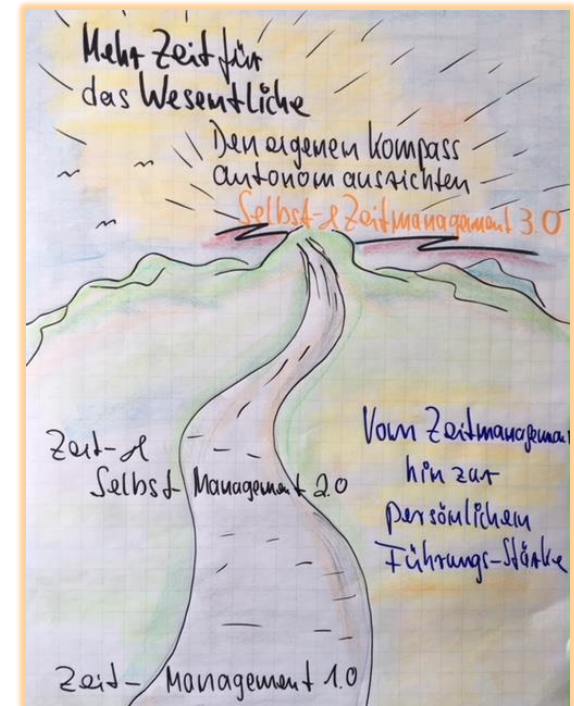 Mehr Zeit für
das Wesentliche
Den eigenen Kompass
autonom ausrichten
Selbst- & Zeitmanagement 3.0
Zeit- &
Selbst Management 2.0
Vom Zeitmanagement
hin zur
persönlichem
Führungs-Stärke
Zeit- Management 1.0